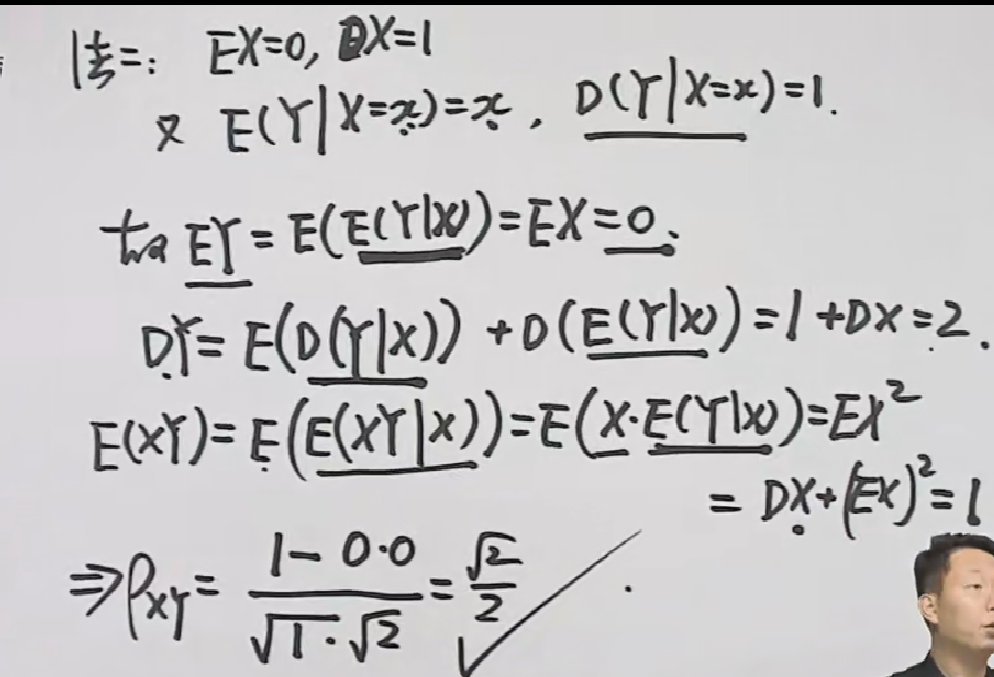 法二: EX=0, DX=1
又 E(Y|X=x)=x, D(Y|X=x)=1.
故 EY=E(E(Y|X))=EX=0.
DY=E(D(Y|X))+D(E(Y|X))=1+DX=2.
E(XY)=E(E(XY|X))=E(X·E(Y|X))=EX²
=DX+(EX)²=1
⇒ρ_XY=\frac{1-0·0}{√1·√2}=\frac{√2}{2}